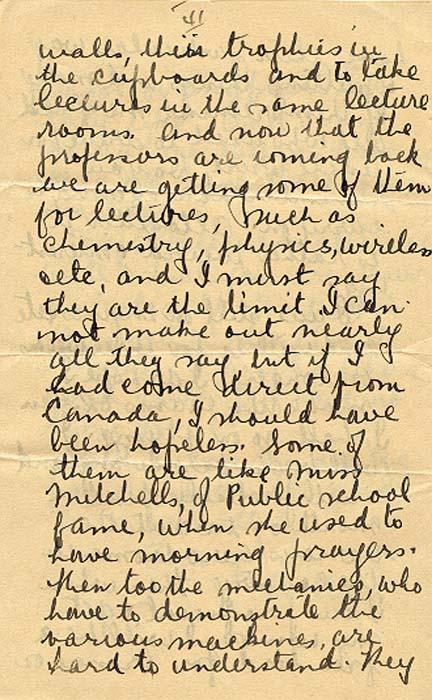 walls, their trophies in
the cupboards and to take
lectures in the same lecture
rooms. And now that the
professors are coming back
we are getting some of them
for lectures, such as
chemestry, physics, wireless
cetc, and I must say
they are the limit. I can
not make out nearly
all they say but if I
had come direct from
Canada, I should have
been hopeless. Some of
them are like Miss
Mitchells, of Public school
fame, when she used to
have morning prayers.
Then too the mechanics, who
have to demonstrate the
various machines, are
hard to understand. They